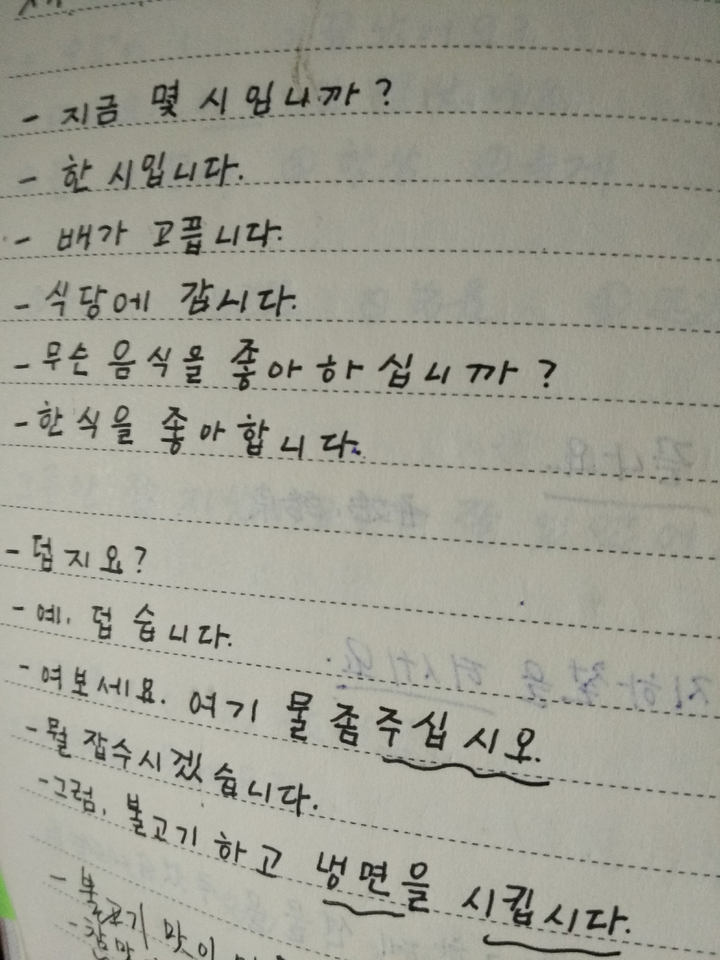 - 지금 몇 시입니까?
- 한 시입니다.
- 배가 고픕니다.
- 식당에 갑니다.
- 무슨 음식을 좋아하십니까?
- 한식을 좋아합니다.
- 덥지요?
- 예. 덥습니다.
- 여보세요. 여기 물 좀 주십시오.
- 뭘 잡수시겠습니다.
- 그럼, 불고기하고 냉면을 시킵시다.
- 불고기 맛이